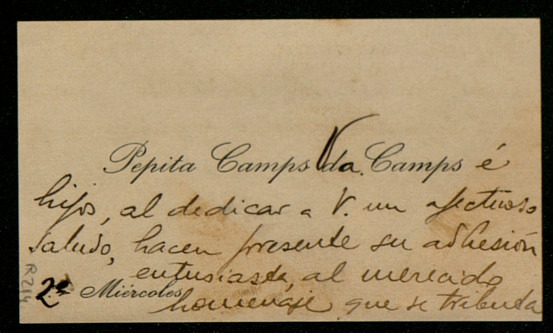 Pepita Camps Vda. Camps é
hijos, al dedicar a V. un afectuoso
saludo, hacen presente su adhesión
entusiasta, al merecido
2.os Miércoles
homenaje que se tributa
R214